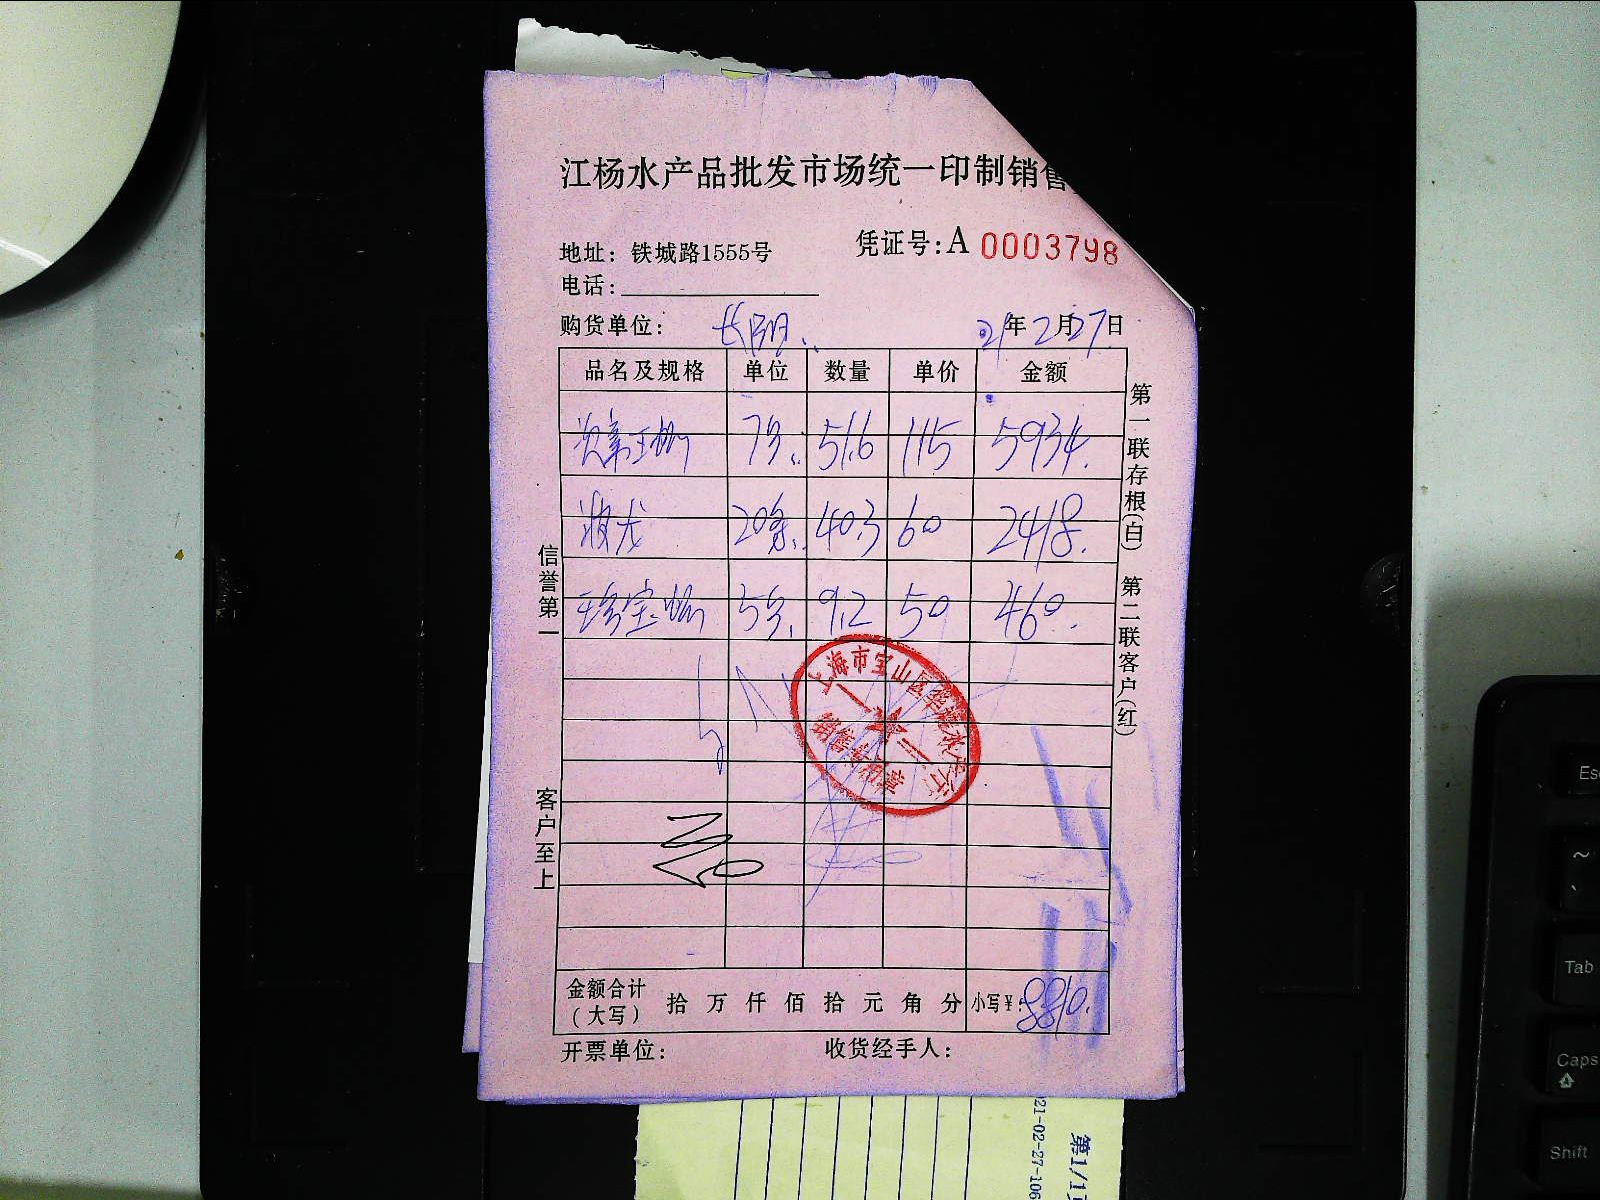 江杨水产品批发市场统一印制销售
地址：铁城路1555号
凭证号：A 0003798
电话：
购货单位：长阳
21年2月27日
品名及规格 单位 数量 单价 金额
7只 51.6 115 5934.
波龙 20条 40.3 60 2418.
珍宝蟹 5只 9.2 50 460.
第一联存根（白） 第二联客户（红）
信誉第一
客户至上
上海市宝山区华 水产
销售专用章
金额合计（大写） 拾 万 仟 佰 拾 元 角 分 小写¥：8810.
开票单位： 收货经手人：
21-02-27-106
第1/1
Esc
~
Tab
Caps
Shift